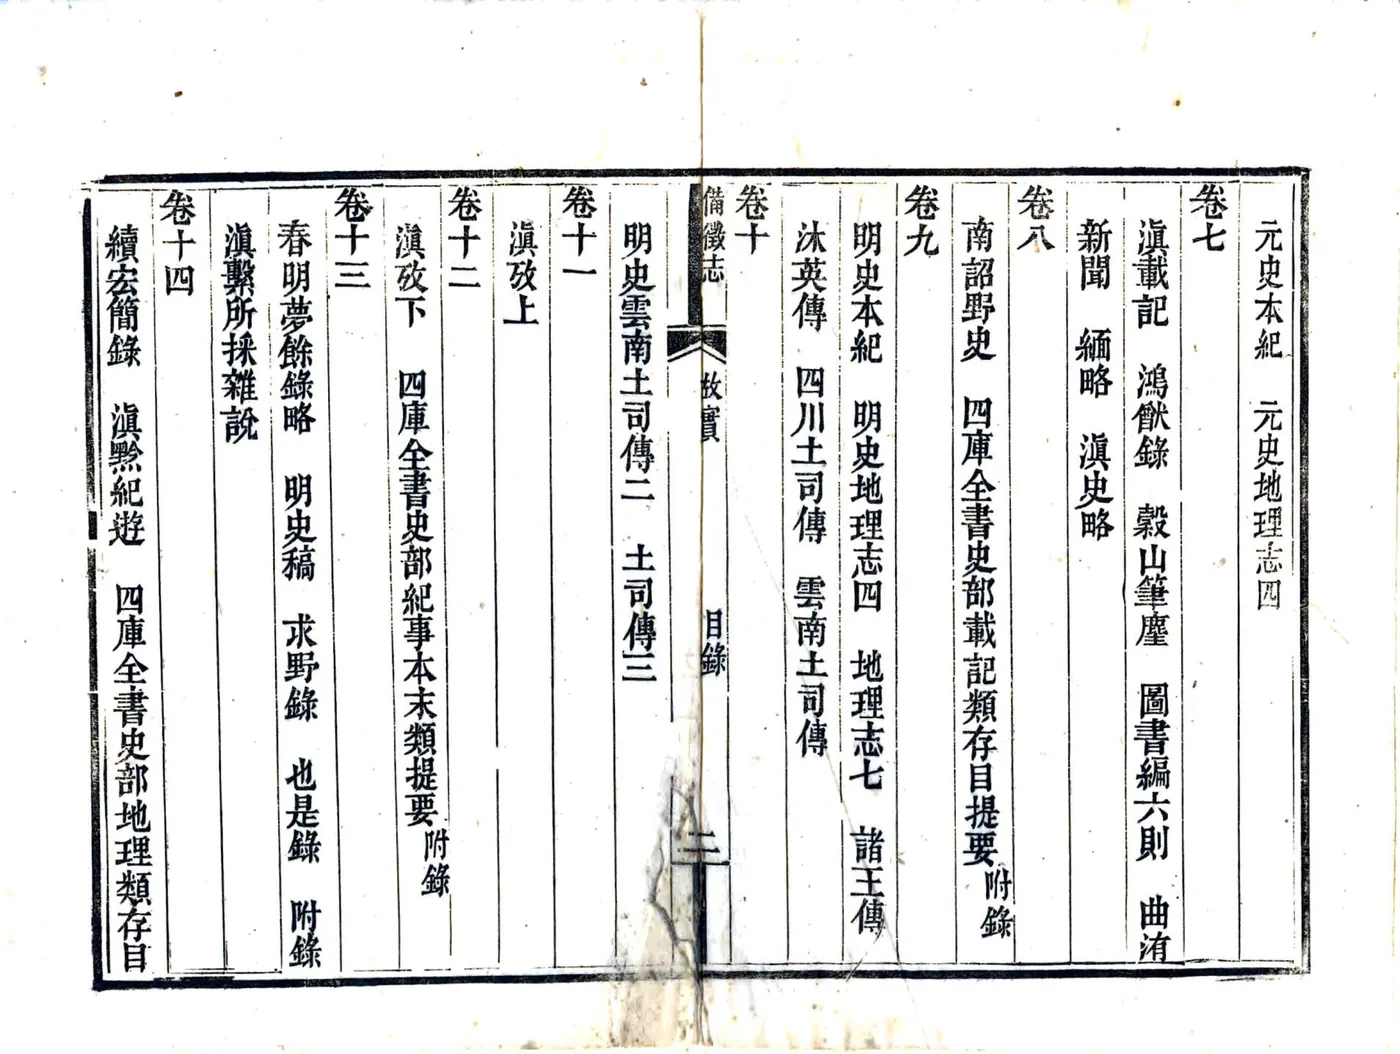 元史本紀　元史地理志四
卷七
滇載記　鴻猷錄　穀山筆麈　圖書編六則　曲洧
新聞　緬略　滇史略
卷八
南詔野史　四庫全書史部載記類存目提要附錄
卷九
明史本紀　明史地理志四　地理志七　諸王傳
沐英傳　四川土司傳　雲南土司傳
卷十
備徵志　故實　目錄　二
明史雲南土司傳二　土司傳三
卷十一
滇攷上
卷十二
滇攷下　四庫全書史部紀事本末類提要附錄
卷十三
春明夢餘錄略　明史稿　求野錄　也是錄　附錄
滇繫所採雜說
卷十四
續宏簡錄　滇黔紀遊　四庫全書史部地理類存目